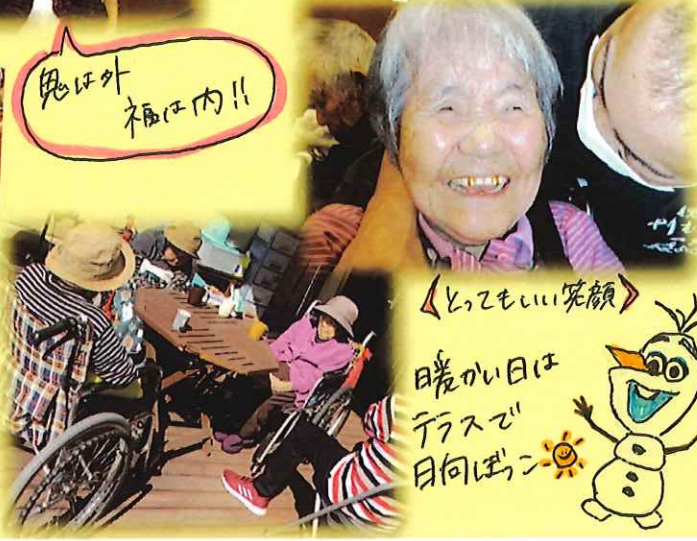 鬼は外
福は内!!
とってもいい笑顔
暖かい日は
テラスで
日向ぼっこ